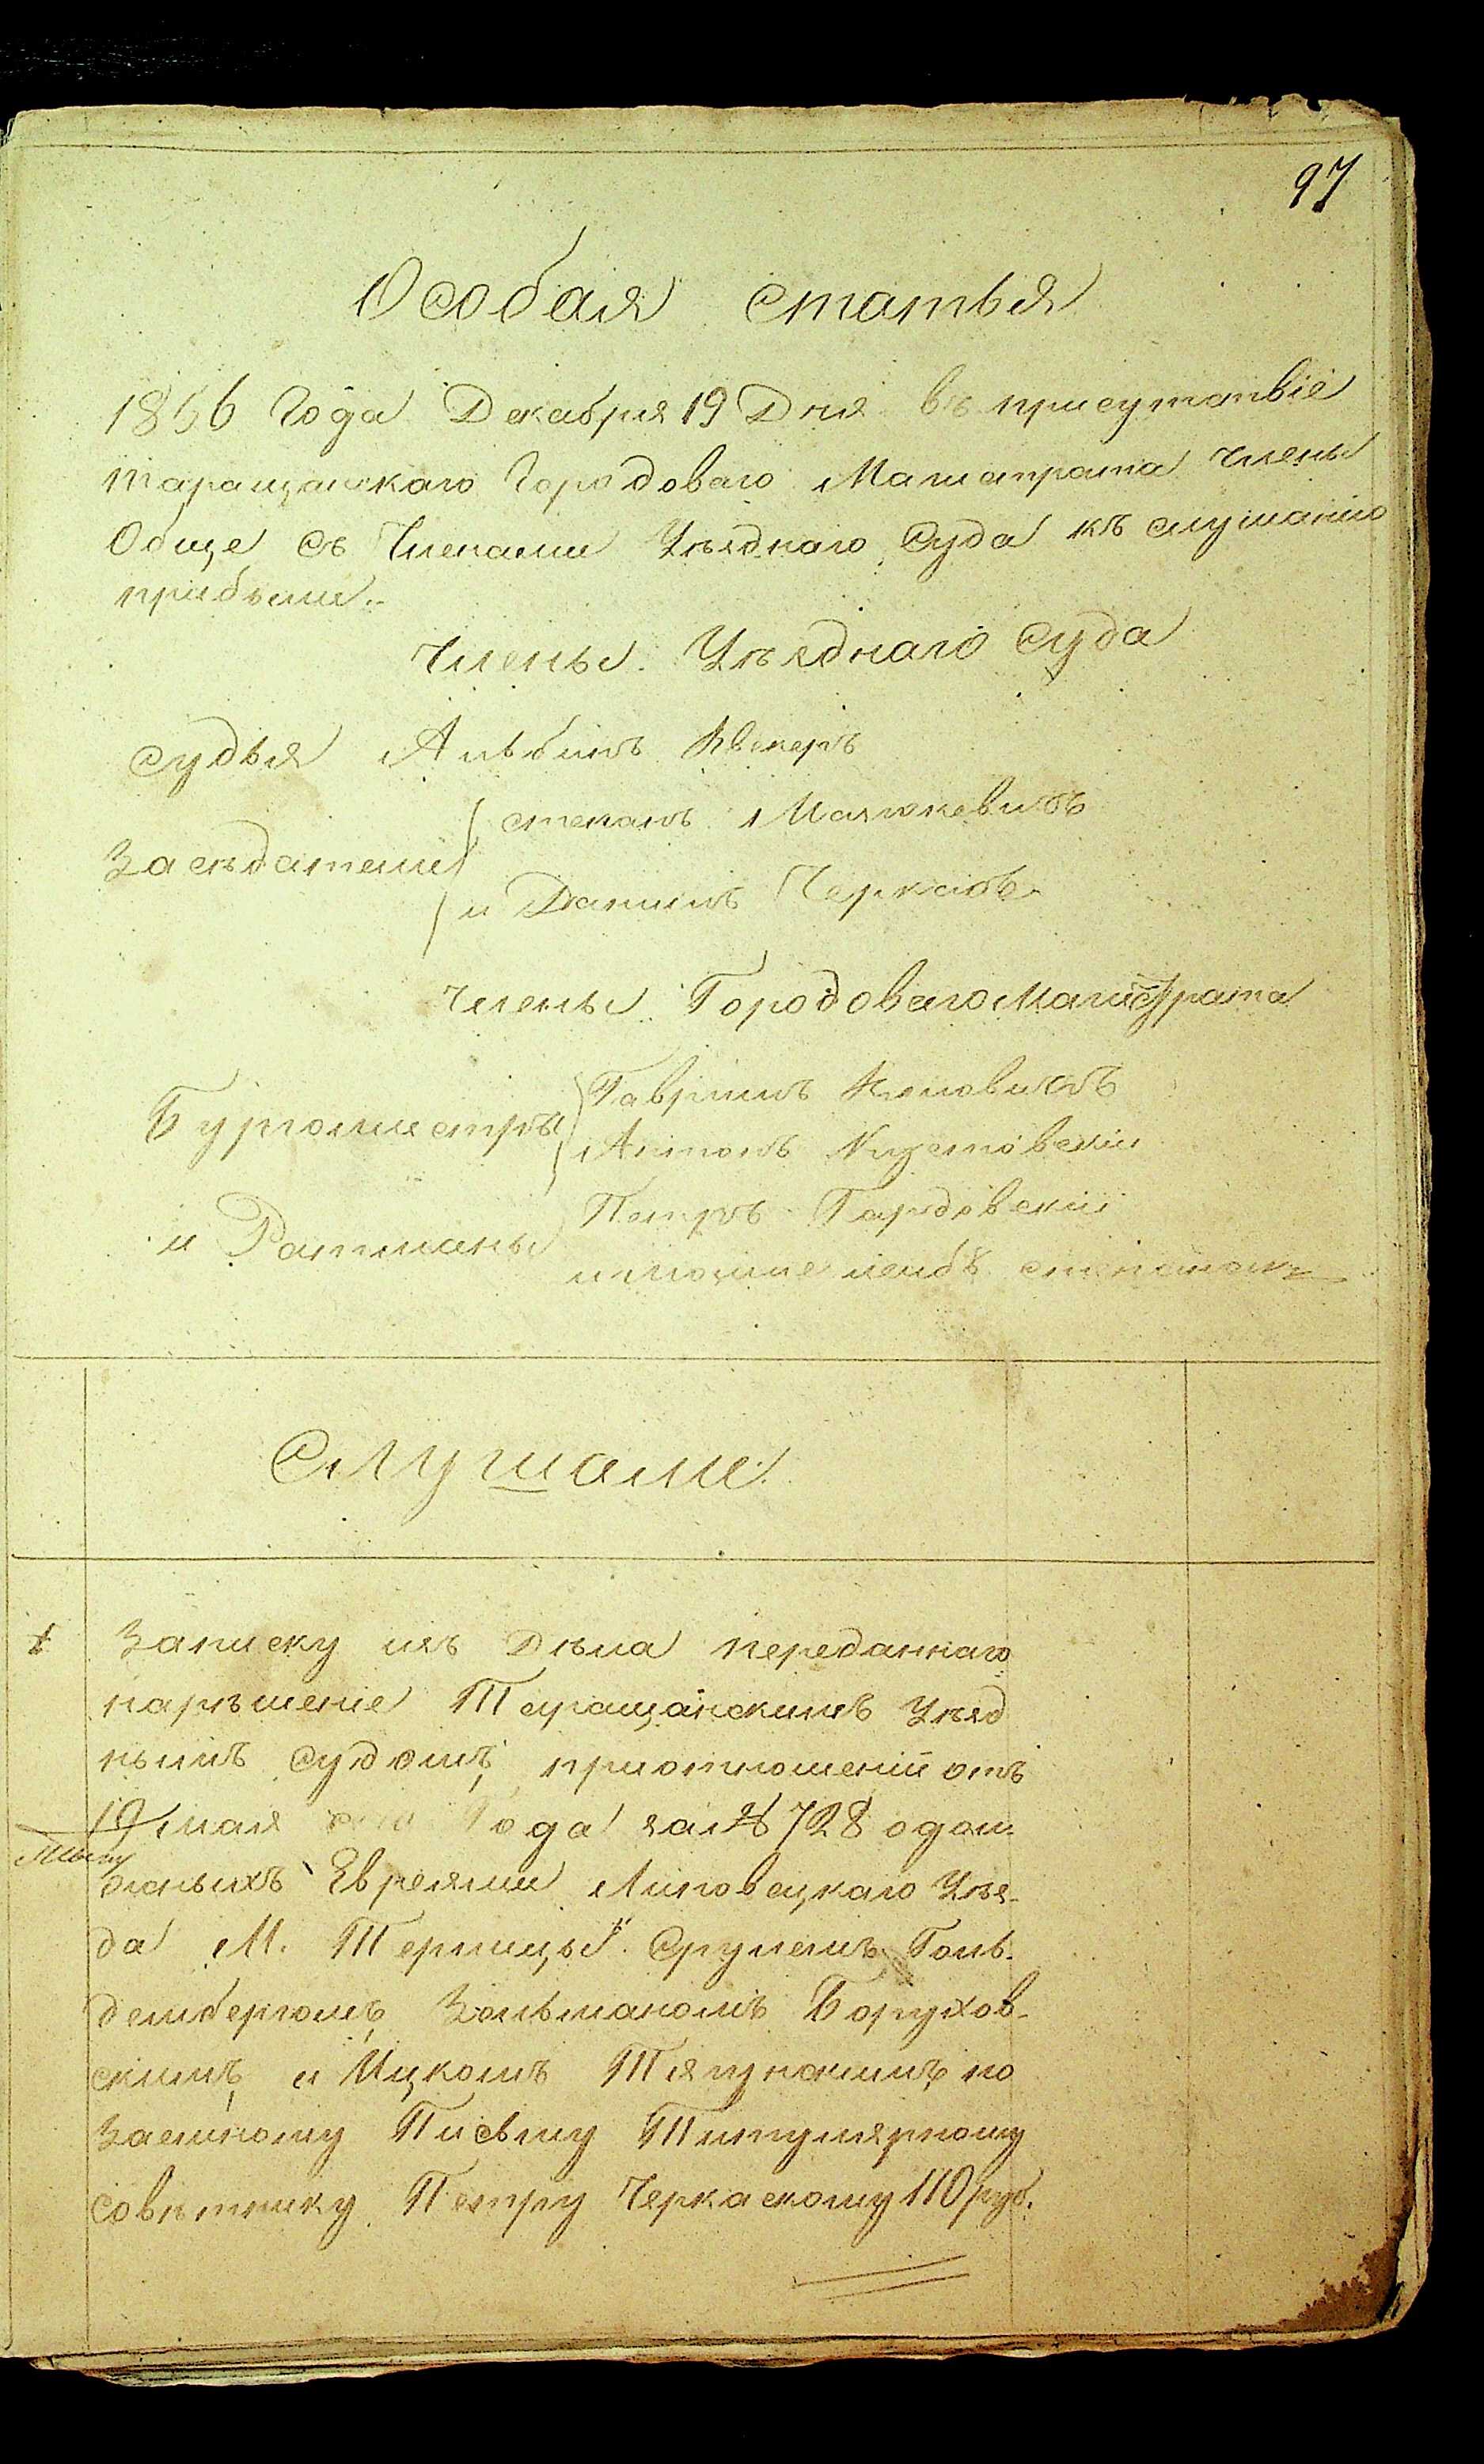 97
Особая статья
1856 Года Декабря 19 Дня въ присутствіе
таращанскаго Городоваго Магистрата члены
Обще съ Членами Уѣзднаго Суда къ слушанію
прибыли.
Члены Уѣзднаго Суда
Судья Альбинъ
Засѣдатели степанъ
и Данилъ
Члены Городоваго Магистрата
Бургомистры Гавріилъ
Антонъ
и Ратманы Петръ Гардовскій
и лейбъ
Слушали
Записку изъ Дѣла переданнаго
нарѣшеніе Таращанскимъ Уѣзд
нымъ Судомъ, приотношеніи отъ
19 мая сего Года за № 728 одол-
жаныхъ Евреями Липовецкаго Уѣз-
да М. Терлицы Срулемъ Голь-
денбергомъ, Зельманомъ Борухов-
скимъ, и Ицкомъ по
Заемному Письму Титулярному
совѣтнику Петру Черкаскому 110 руб.